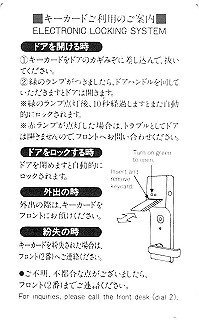 ■キーカードご利用のご案内■
ELECTRONIC LOCKING SYSTEM
ドアを開ける時
①キーカードをドアのカギみぞに差し込んで、抜い
てください。
②緑のランプがつきましたら、ドアハンドルを回して
いただきますとドアは開きます。
※緑のランプ点灯後、10秒経過しますとまた自動
的にロックされます。
※赤ランプが点灯した場合は、トラブルとしてドア
は開きませんのでフロントへお問い合わせください。
ドアをロックする時
ドアを閉めますと自動的に
ロックされます。
Turn on green
to open.
Insert and
remove
keycard.
外出の時
外出の際は、キーカードを
フロントにお預けください。
紛失の時
キーカードを紛失された場合は、
フロント(2番)へご連絡ください。
●ご不明、不都合な点がございましたら、
フロント(2番)までご連絡ください。
For inquiries, please call the front desk (dial 2).